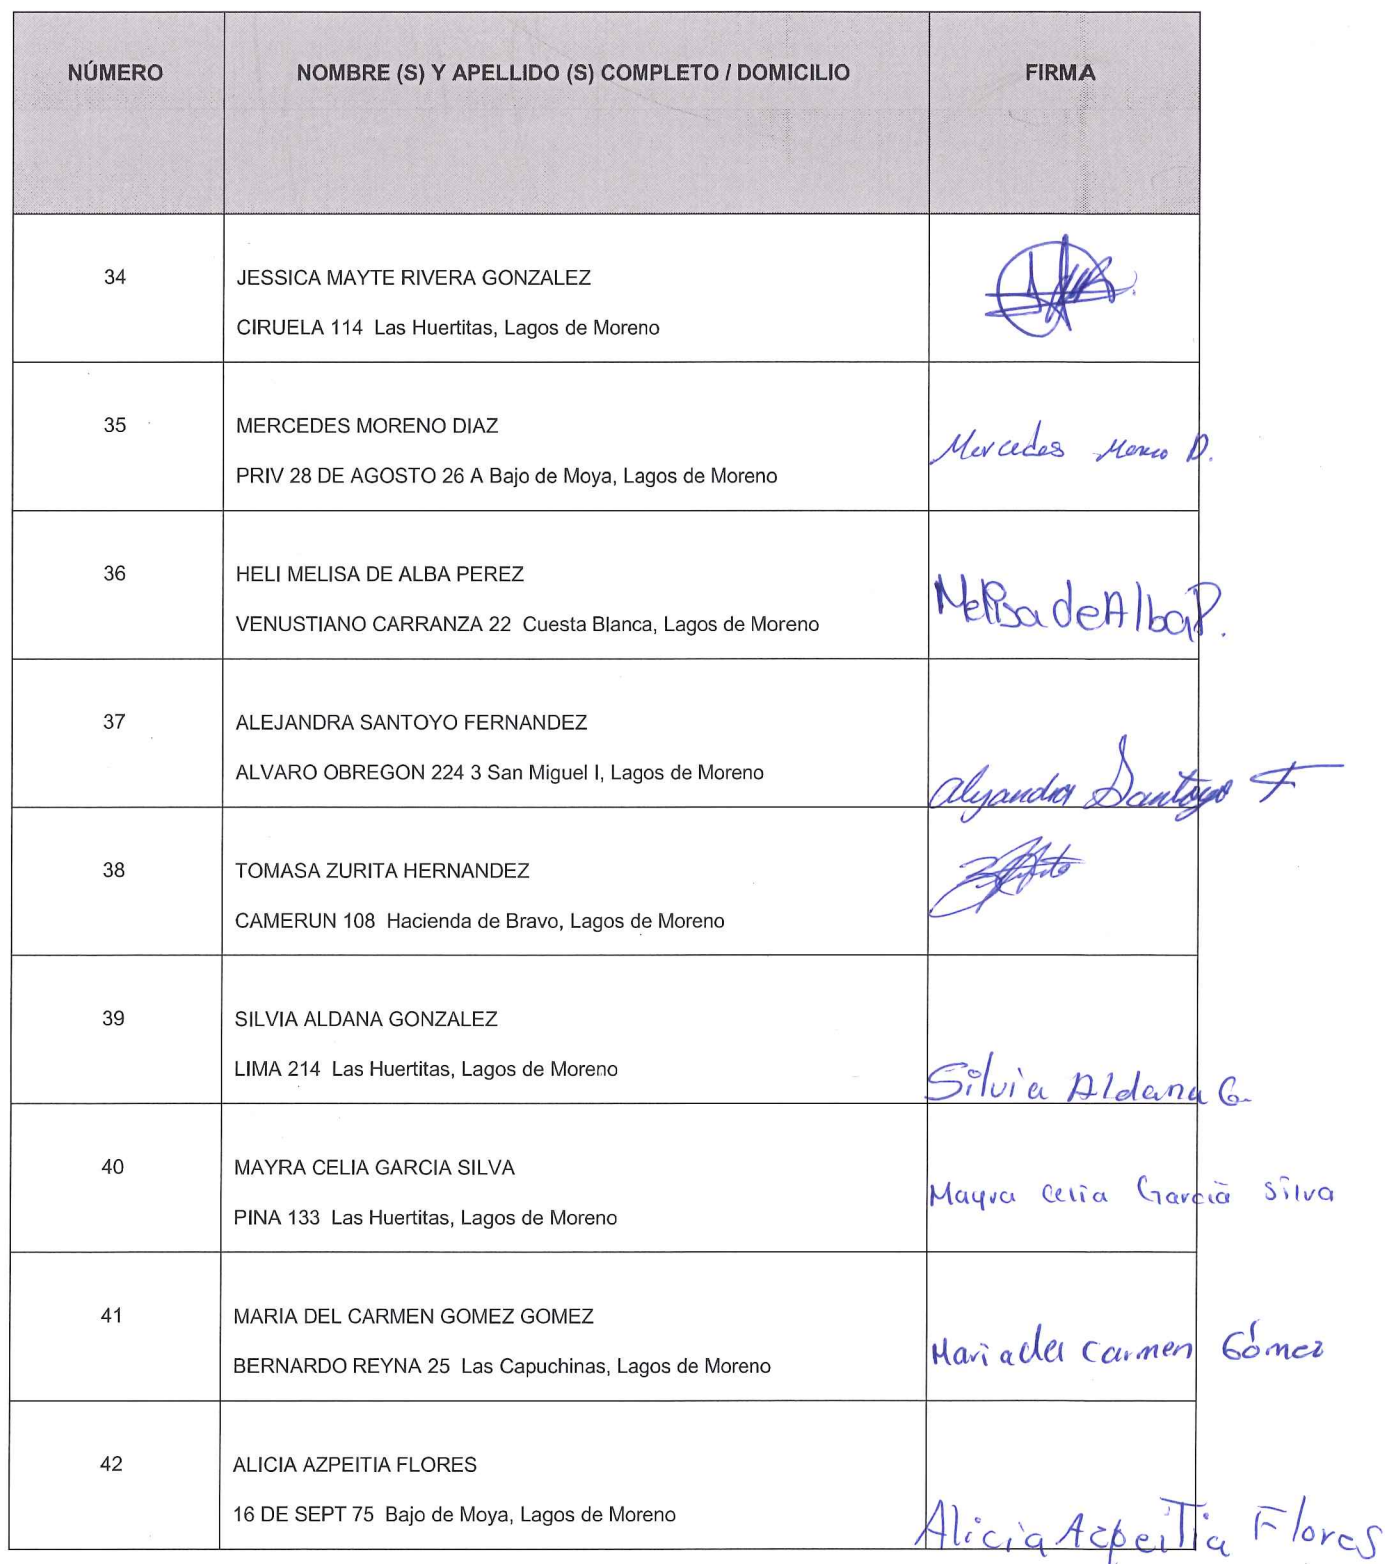 NÚMERO NOMBRE (S) Y APELLIDO (S) COMPLETO / DOMICILIO FIRMA
34 JESSICA MAYTE RIVERA GONZALEZ
CIRUELA 114 Las Huertitas, Lagos de Moreno
35 MERCEDES MORENO DIAZ
Mercedes Moreno D.
PRIV 28 DE AGOSTO 26 A Bajo de Moya, Lagos de Moreno
36 HELI MELISA DE ALBA PEREZ
Melisa de Alba P.
VENUSTIANO CARRANZA 22 Cuesta Blanca, Lagos de Moreno
37 ALEJANDRA SANTOYO FERNANDEZ
ALVARO OBREGON 224 3 San Miguel I, Lagos de Moreno
Alejandra Santoyo F
38 TOMASA ZURITA HERNANDEZ
CAMERUN 108 Hacienda de Bravo, Lagos de Moreno
39 SILVIA ALDANA GONZALEZ
LIMA 214 Las Huertitas, Lagos de Moreno
Silvia Aldana G.
40 MAYRA CELIA GARCIA SILVA
Mayra Celia Garcia Silva
PINA 133 Las Huertitas, Lagos de Moreno
41 MARIA DEL CARMEN GOMEZ GOMEZ
Maria del Carmen Gómez
BERNARDO REYNA 25 Las Capuchinas, Lagos de Moreno
42 ALICIA AZPEITIA FLORES
16 DE SEPT 75 Bajo de Moya, Lagos de Moreno
Alicia Azpeitia Flores